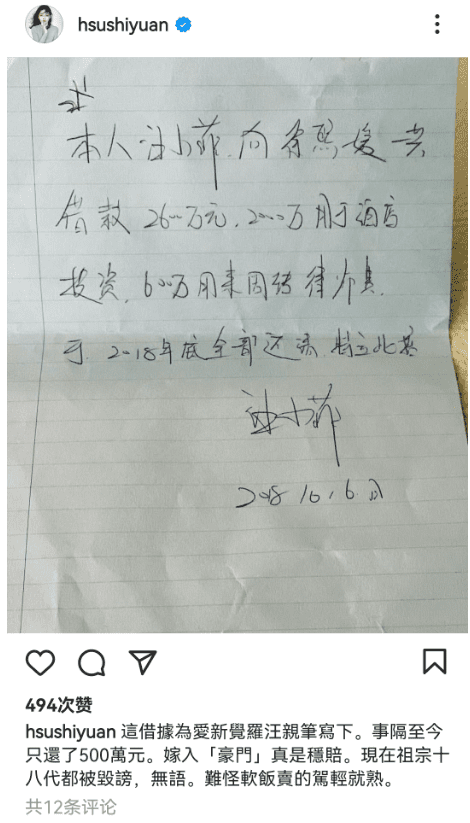 hsushiyuan
本人汪小菲,向徐熙媛共
借款2600万元,2000万用于酒店
投资,600万用来周转
于2018年底全部还清,特立此据
汪小菲
494次赞
hsushiyuan 這借據為愛新覺羅汪親筆寫下。事隔至今
只還了500萬元。嫁入「豪門」真是穩賠。現在祖宗十
八代都被毀謗，無語。難怪軟飯賣的駕輕就熟。
共12条评论